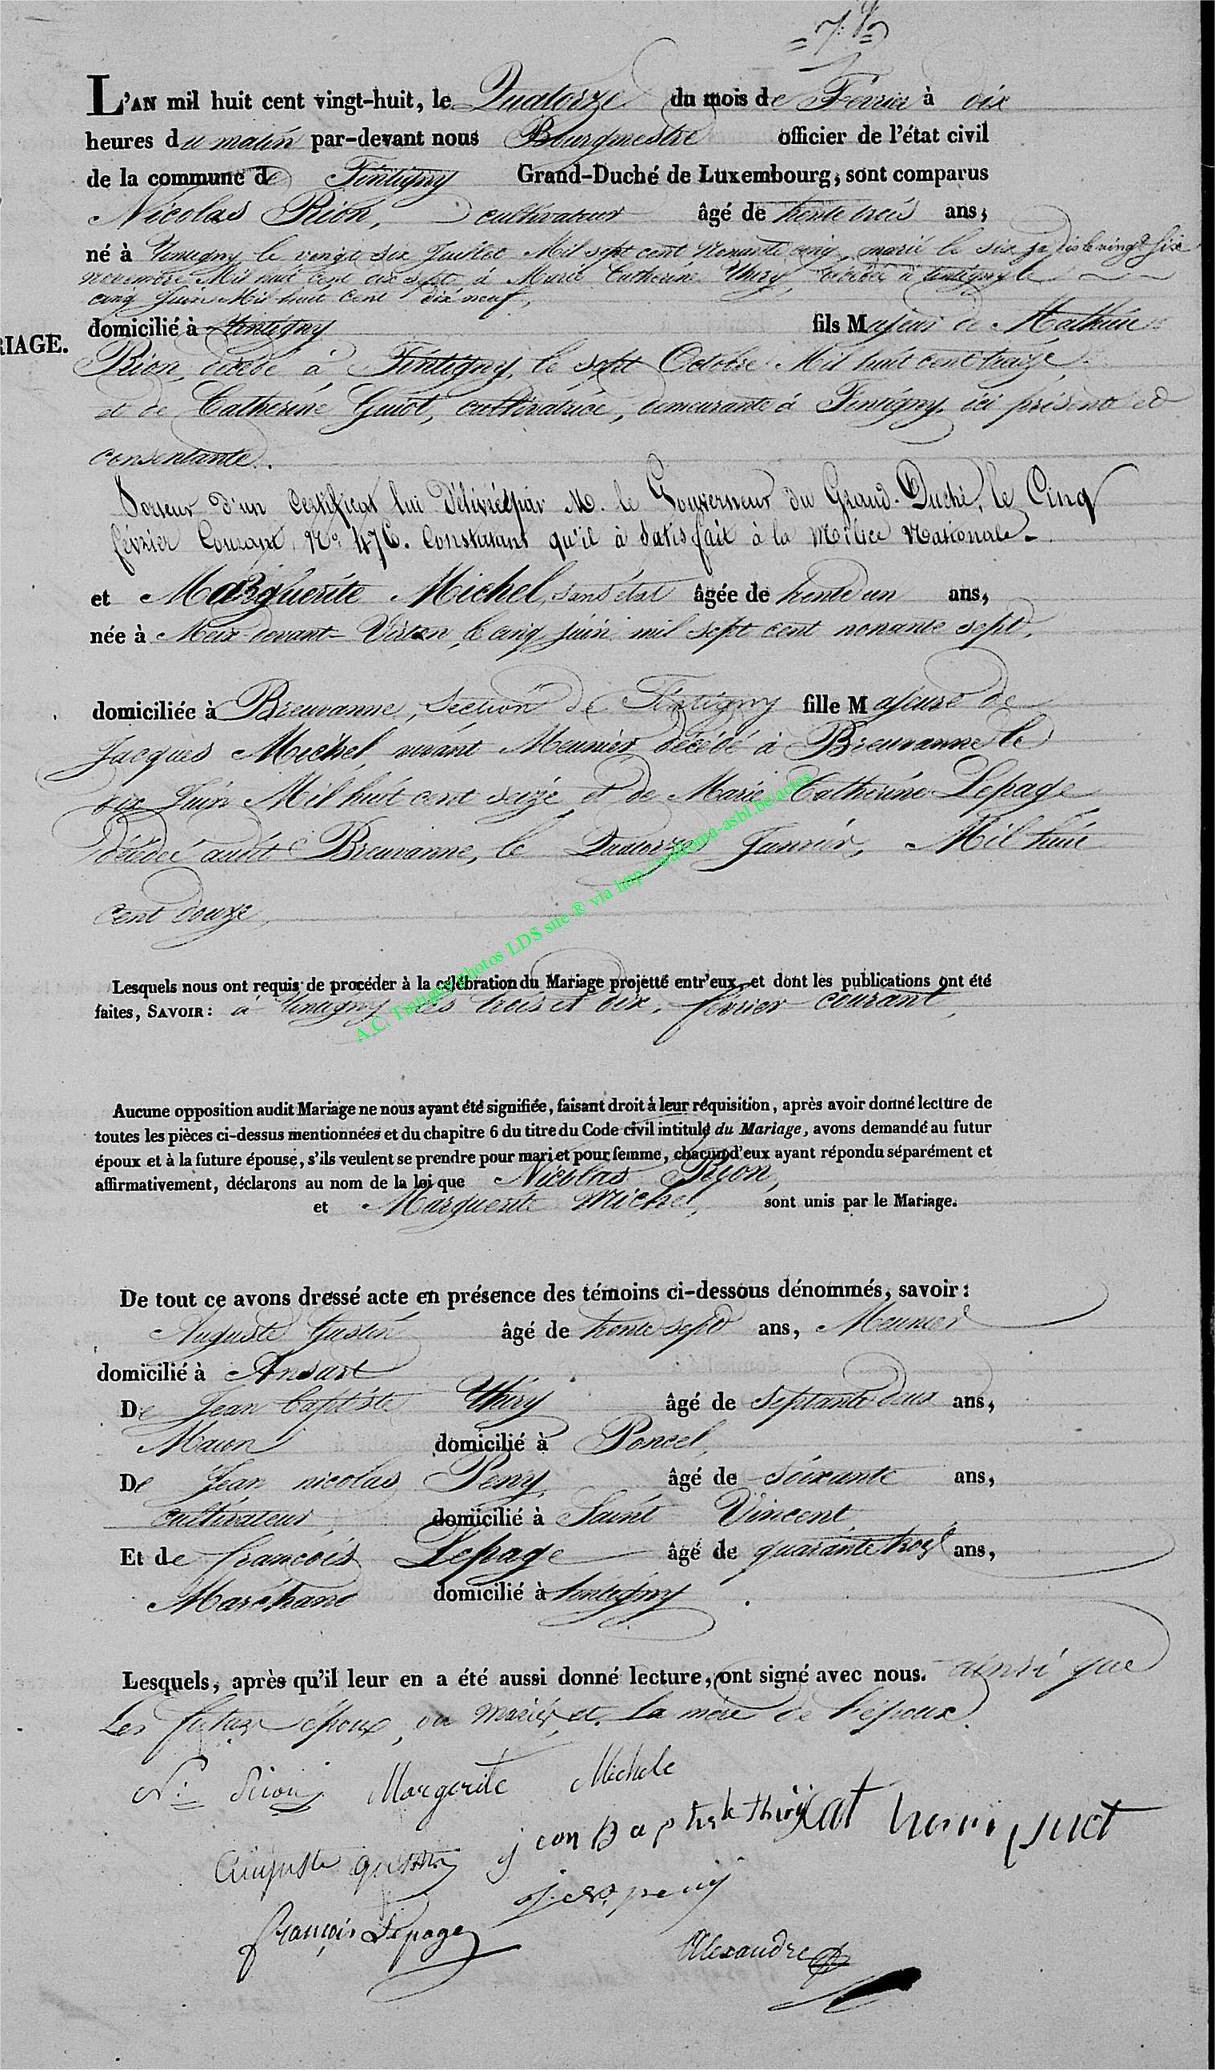 L'AN mil huit cent vingt-huit, le Quatorze du mois de Février à dix
heures du matin par-devant nous Bourgmestre officier de l'état civil
de la commune de Tintigny Grand-Duché de Luxembourg, sont comparus
Nicolas Rion, cultivateur âgé de trente trois ans,
né à Tintigny le vingt six Juillet Mil sept cent Nonante cinq, marié le six je dis le vingt six
novembre Mil huit cent dix sept à Marie Catherine Thiry, décédée à tintigny le
cinq Juin Mil huit cent dix neuf,
domicilié à tintigny fils Majeur de Mathieu
RIAGE.
Rion, décédé à Tintigny, le sept Octobre Mil huit cent treize
et de Catherine Guiot, cultivatrice, demeurante à Tintigny, ici présente et
consentante.
Porteur d'un Certificat lui délivré par M. le Gouverneur du Grand-Duché, le Cinq
février Courant, No. 476. Constatant qu'il à satisfait à la Milice Nationale.
et Marguerite Michel, sans état âgée de trente un ans,
née à Meix devant Virton, le cinq juin mil sept cent nonante sept,
domiciliée à Breuvanne, Section de Tintigny fille Majeure de
Jacques Michel, vivant Meunier, décédé à Breuvanne le
dix Juin Mil huit cent seize et de Marie Catherine Lepage
décédée audit Breuvanne, le Janvier, Mil huit
cent douze,
A.C. Tintigny photos LDS site ® via http://wallonia-asbl.be/actes
Lesquels nous ont requis de procéder à la célébration du Mariage projetté entr'eux, et dont les publications ont été
faites, SAVOIR : à tintigny les trois et dix, février courant,
Aucune opposition audit Mariage ne nous ayant été signifiée, faisant droit à leur réquisition, après avoir donné lecture de
toutes les pièces ci-dessus mentionnées et du chapitre 6 du titre du Code civil intitulé du Mariage, avons demandé au futur
époux et à la future épouse, s'ils veulent se prendre pour mari et pour femme, chacun d'eux ayant répondu séparément et
affirmativement, déclarons au nom de la loi que Nicolas Rion,
et Marguerite Michel, sont unis par le Mariage.
De tout ce avons dressé acte en présence des témoins ci-dessous dénommés, savoir :
Auguste âgé de trente sept ans, Meunier
domicilié à Ansart
De Jean baptiste Thiry âgé de septante deux ans,
Macon domicilié à Poncel,
De Jean nicolas Peny, âgé de soixante ans,
cultivateur, domicilié à Saint Vincent,
Et de françois Lepage âgé de quarante trois ans,
Marchand domicilié à tintigny
Lesquels, après qu'il leur en a été aussi donné lecture, ont signé avec nous. ainsi que
Les futur époux, ou mariés, et la mère de l'époux.
N. Rion Margerite Michele
jean Baptiste thiry cat henriquet
Auguste
j. n. peny
françois Lepage
Alexandre